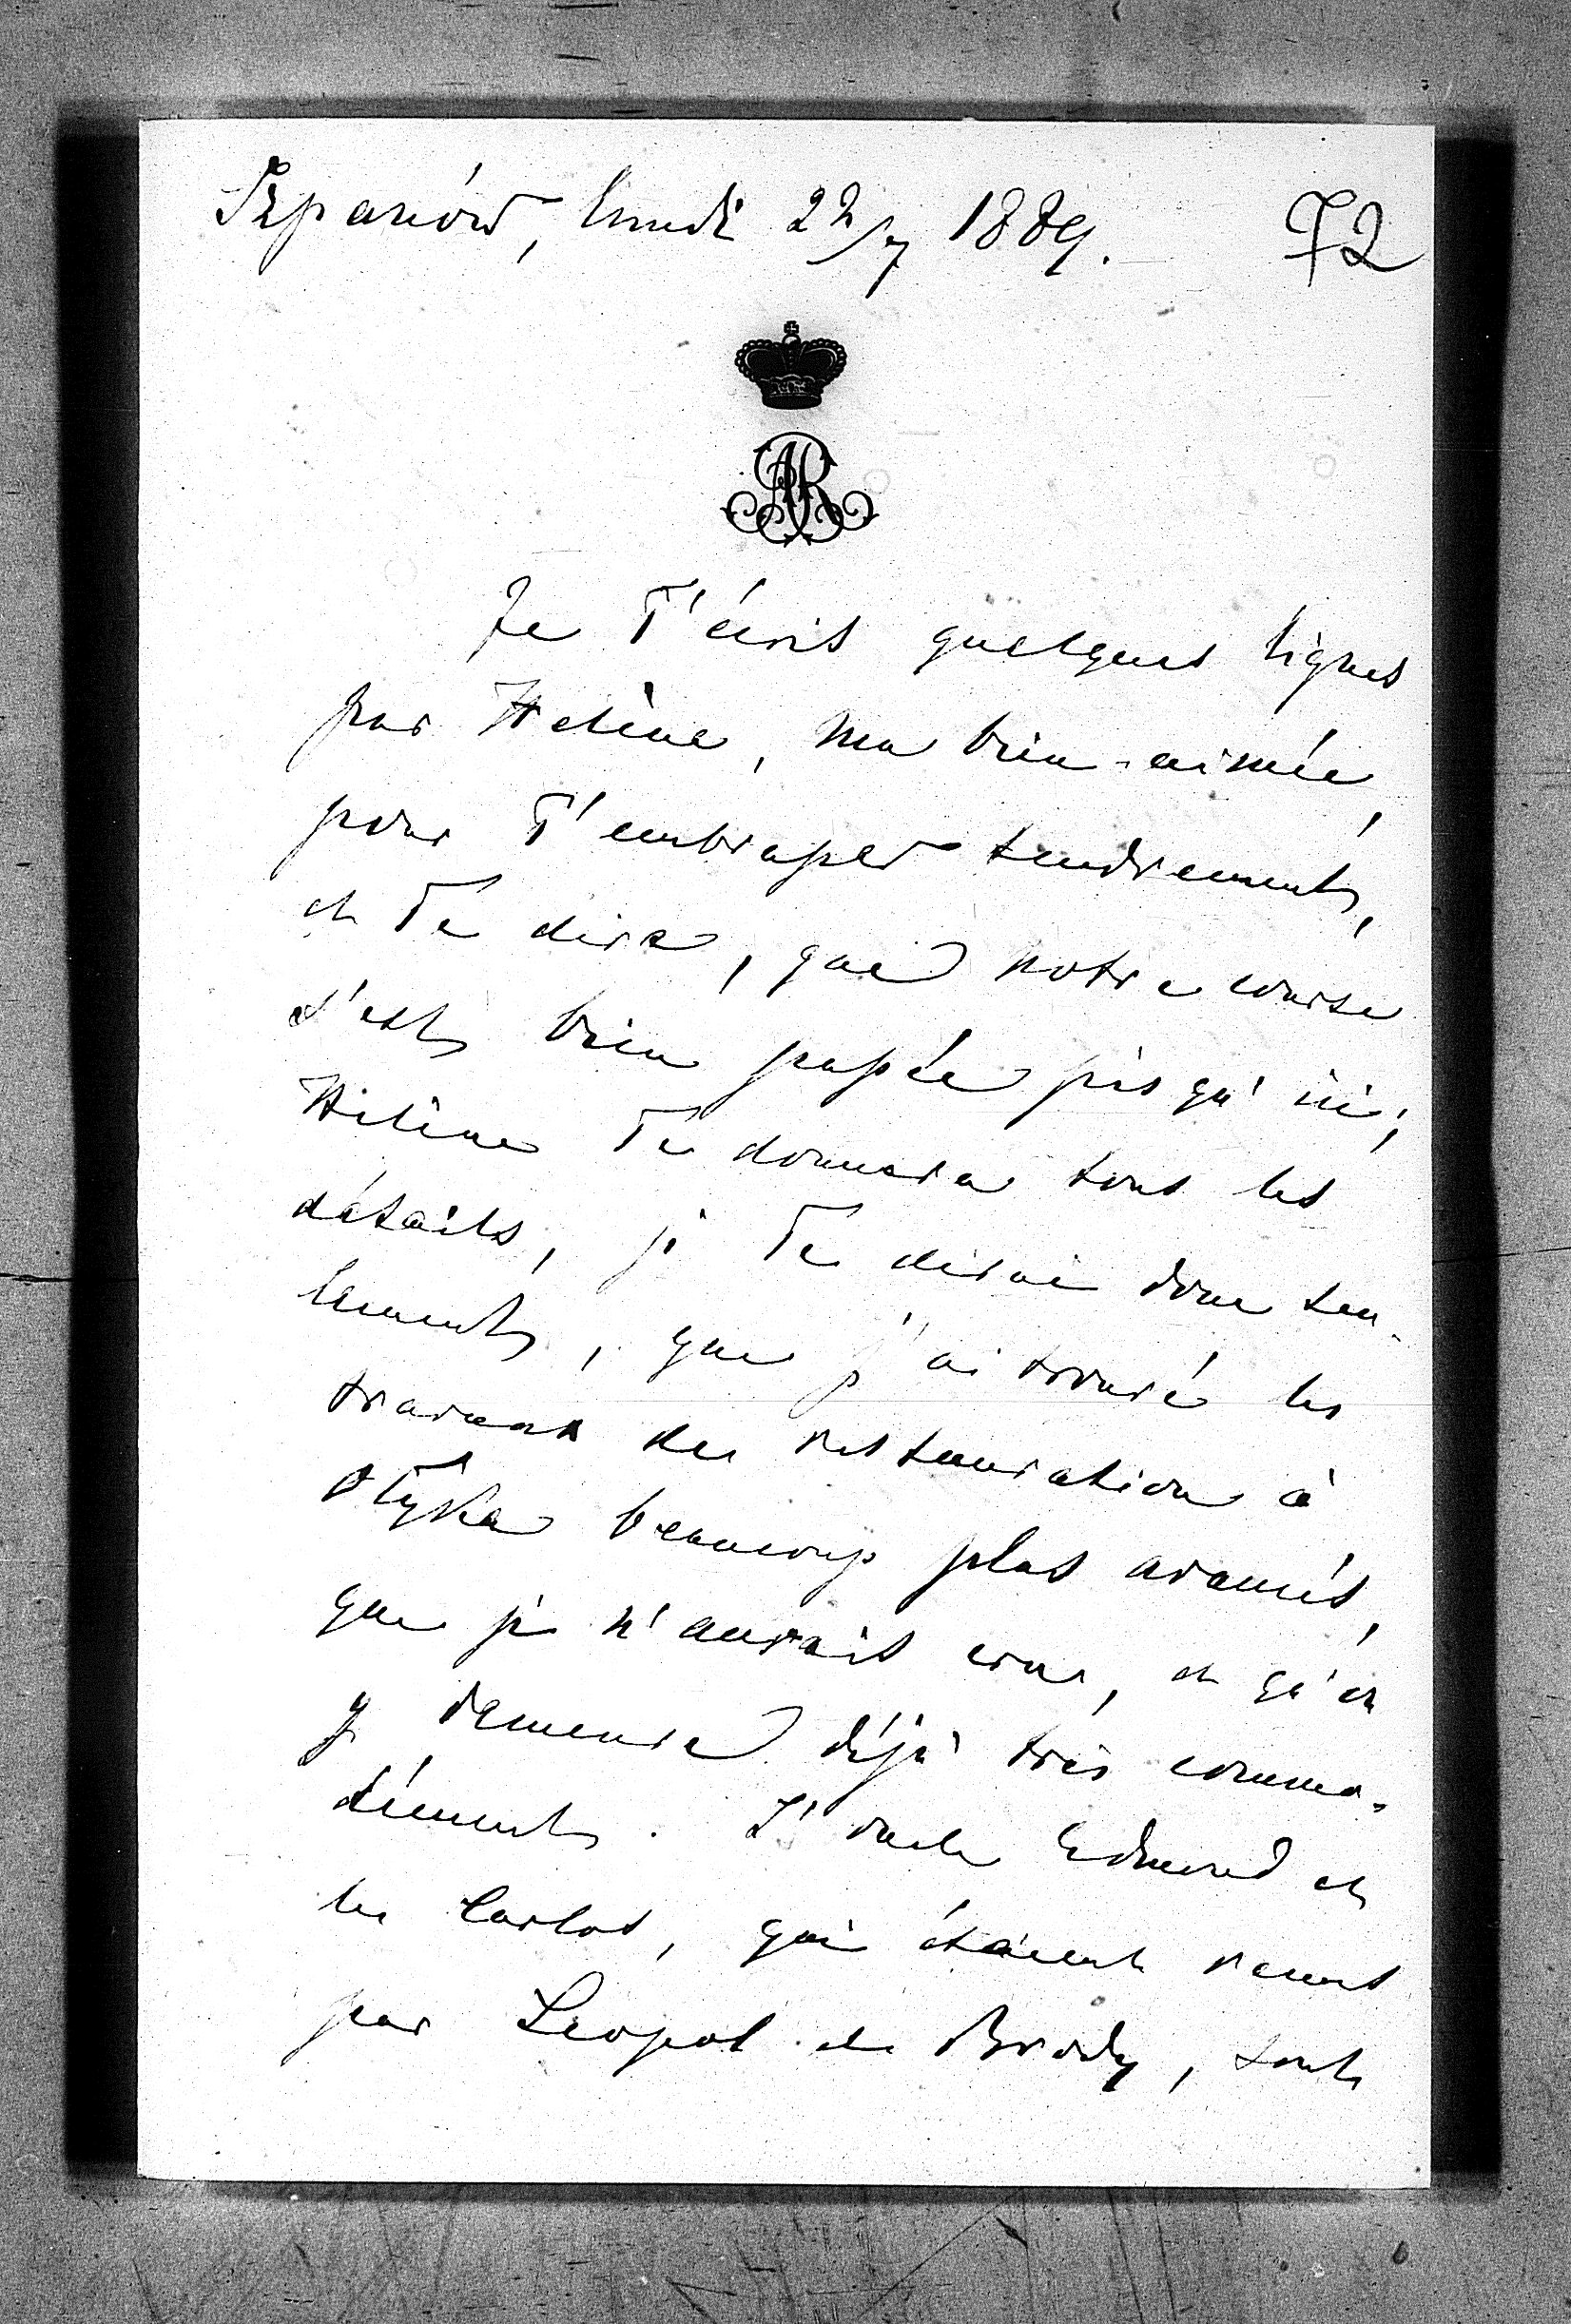 Szpanów, lundi 22/7 1889. 72
AR
Je T'écris quelques lignes
par Hélène, ma bien-aimée,
pour T'embrasser tendrement,
et Te dire, que notre course
s'est bien passée jusqu'ici;
Hélène Te donnera tous les
détails, je Te dirai donc seu-
lement, que j'ai trouvé les
travaux de restauration à
Olyka beaucoup plus avancés,
que je n'aurais cru, et qu'on
y demeure déjà très commo-
dément. L'oncle Edmond et
les Carlos, qui étaient venus
par Léopol et Brody, sont